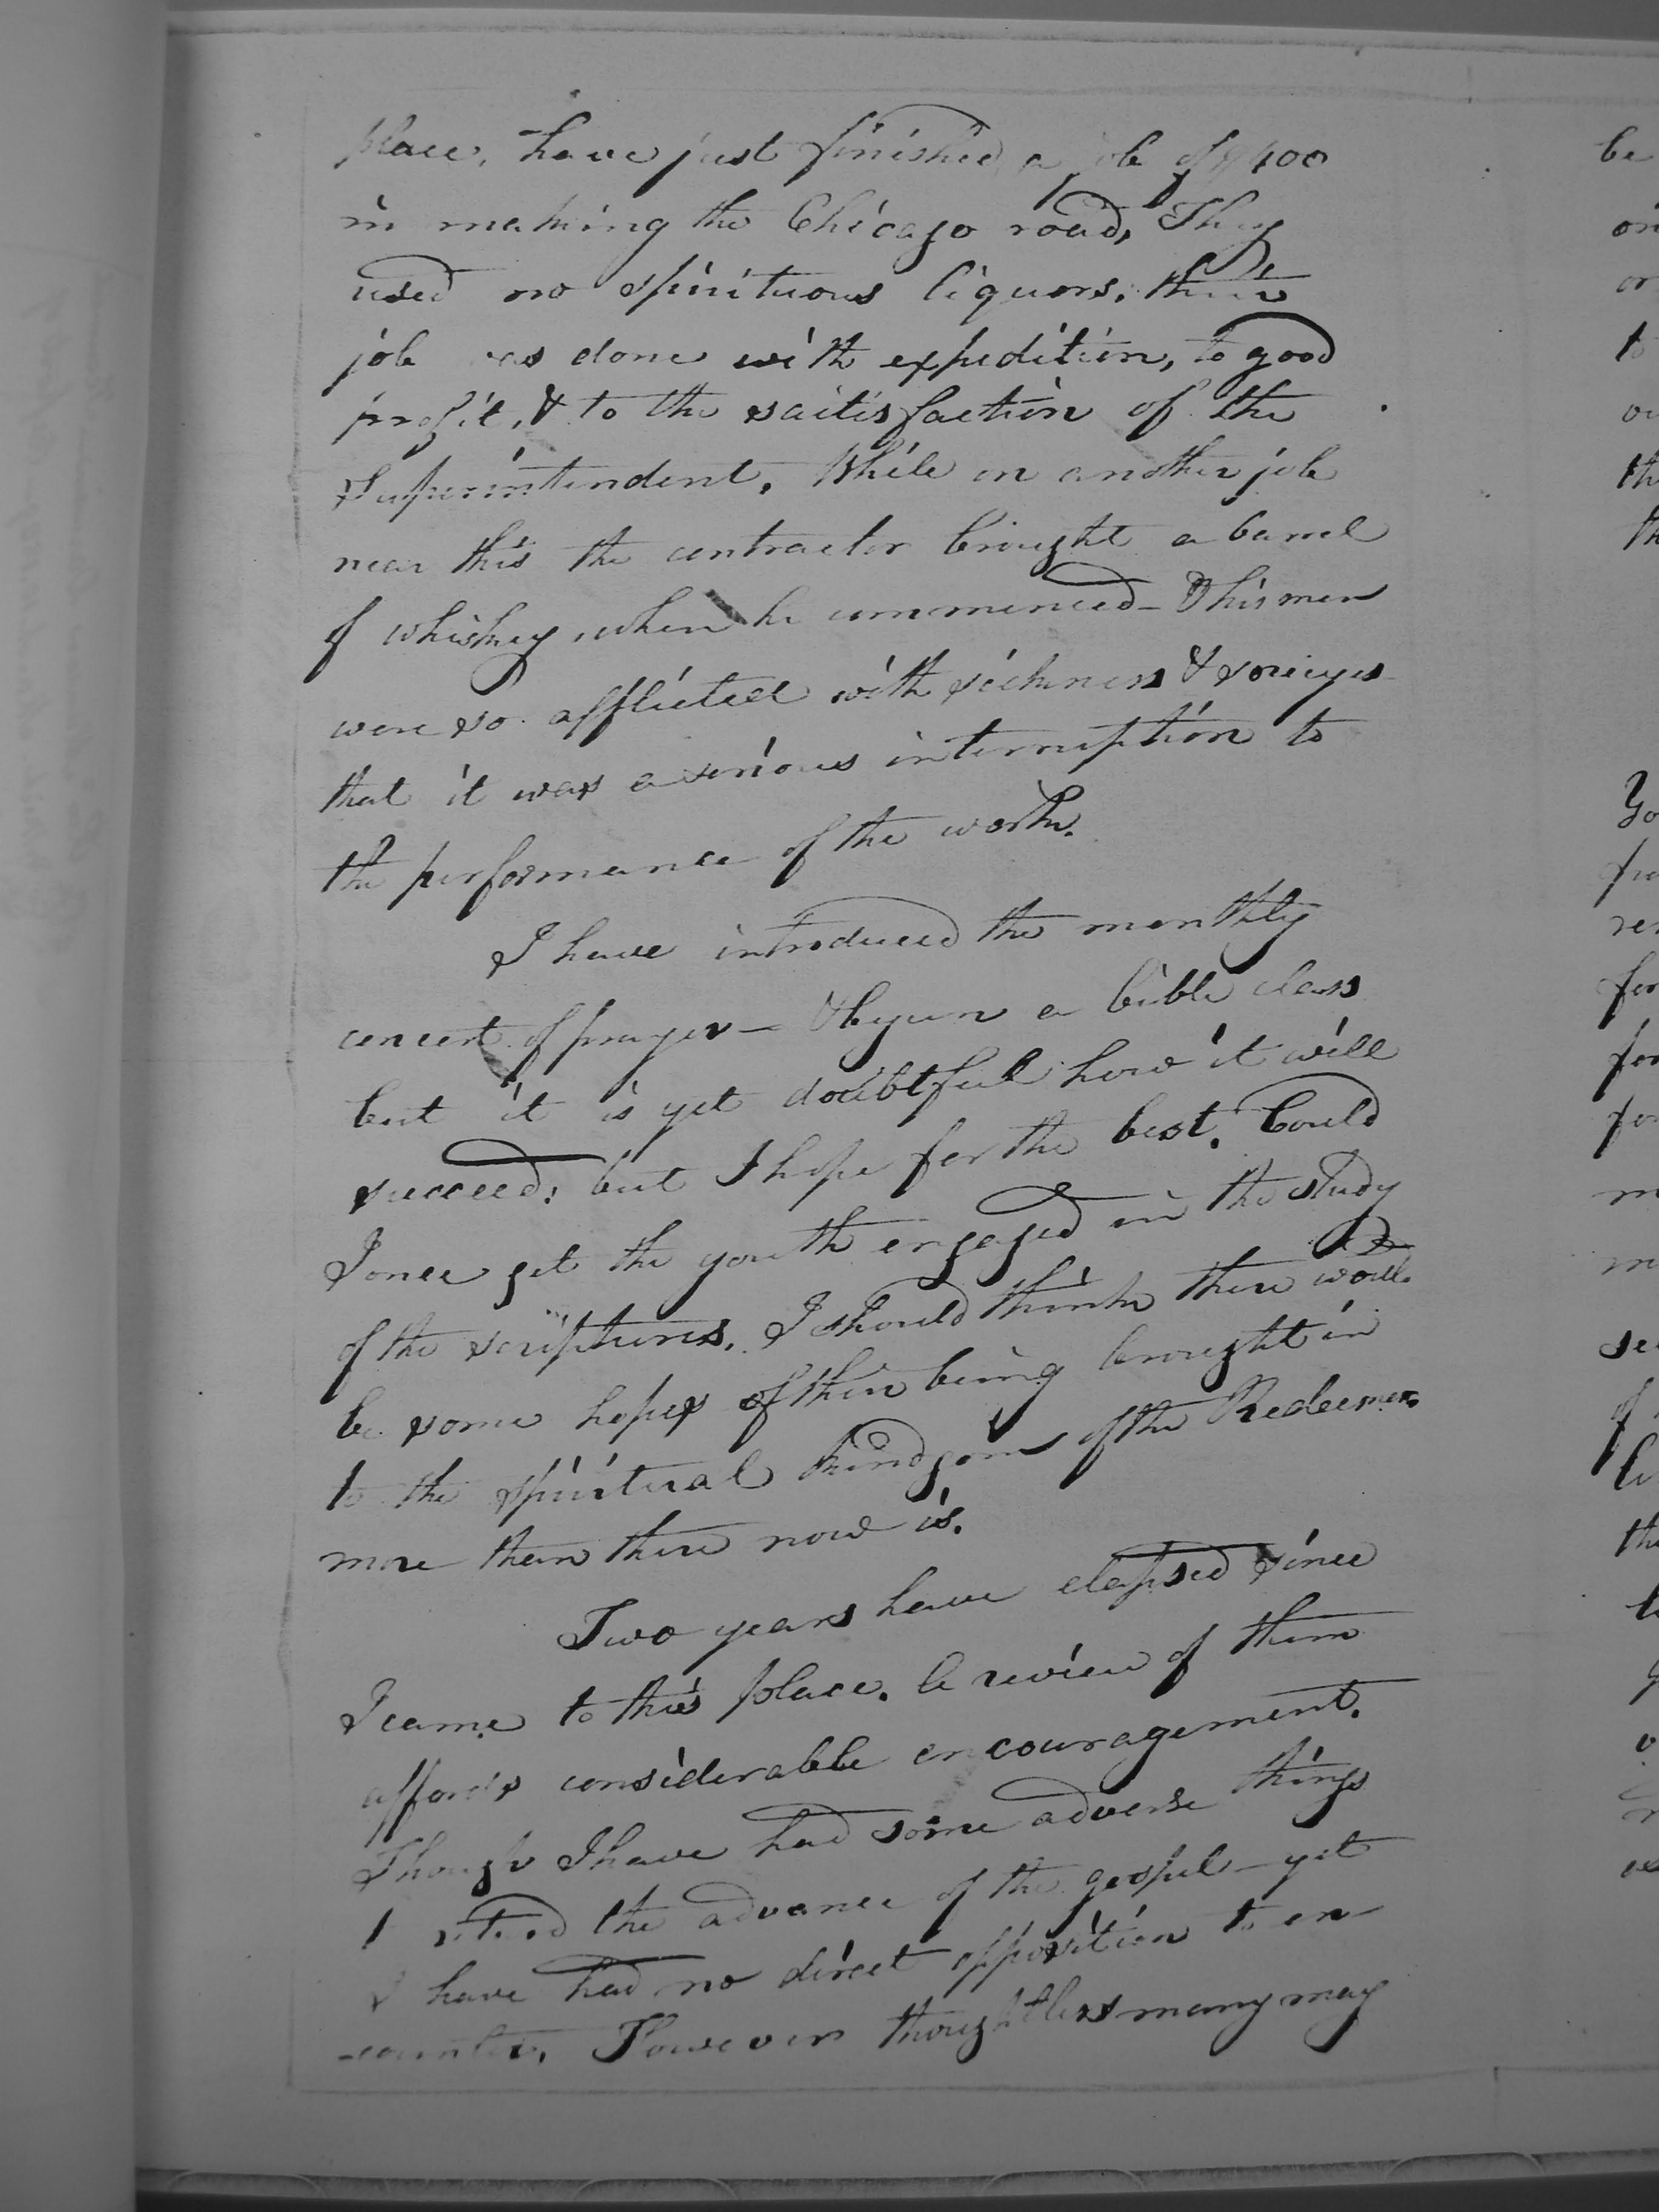 place, have just finished a job of $400
in making the Chicago road, They
used no spirituous liquors, their
job was done with expedition, to good
profit, & to the saitisfaction of the
Superintendent, While on another job
near this the contractor brought a barrel
of whiskey, when he commenced - & his men
were so afflicted with sickness &
that it was a serious interruption to
the performance of the work.
I have introduced the monthly
concert of prayer - & begun a bible class
but it is yet doubtful how it will
succeed; but I hope for the best. Could
I once get the youth engaged in the study
of the scriptures, I should think there would
be some hopes of their being brought in
to the spiritual kindgom of the Redeemer
more than there now is.
Two years have elapsed since
I came to this place. A review of them
affords considerable encouragement.
Though I have had some adverse things
to retard the advance of the gospel - yet
I have had no direct opposition to en-
-counter, However thoughtless many may
be
on
or
to
the
th
Yo
ren
for
for
for
m
m
se
of
the